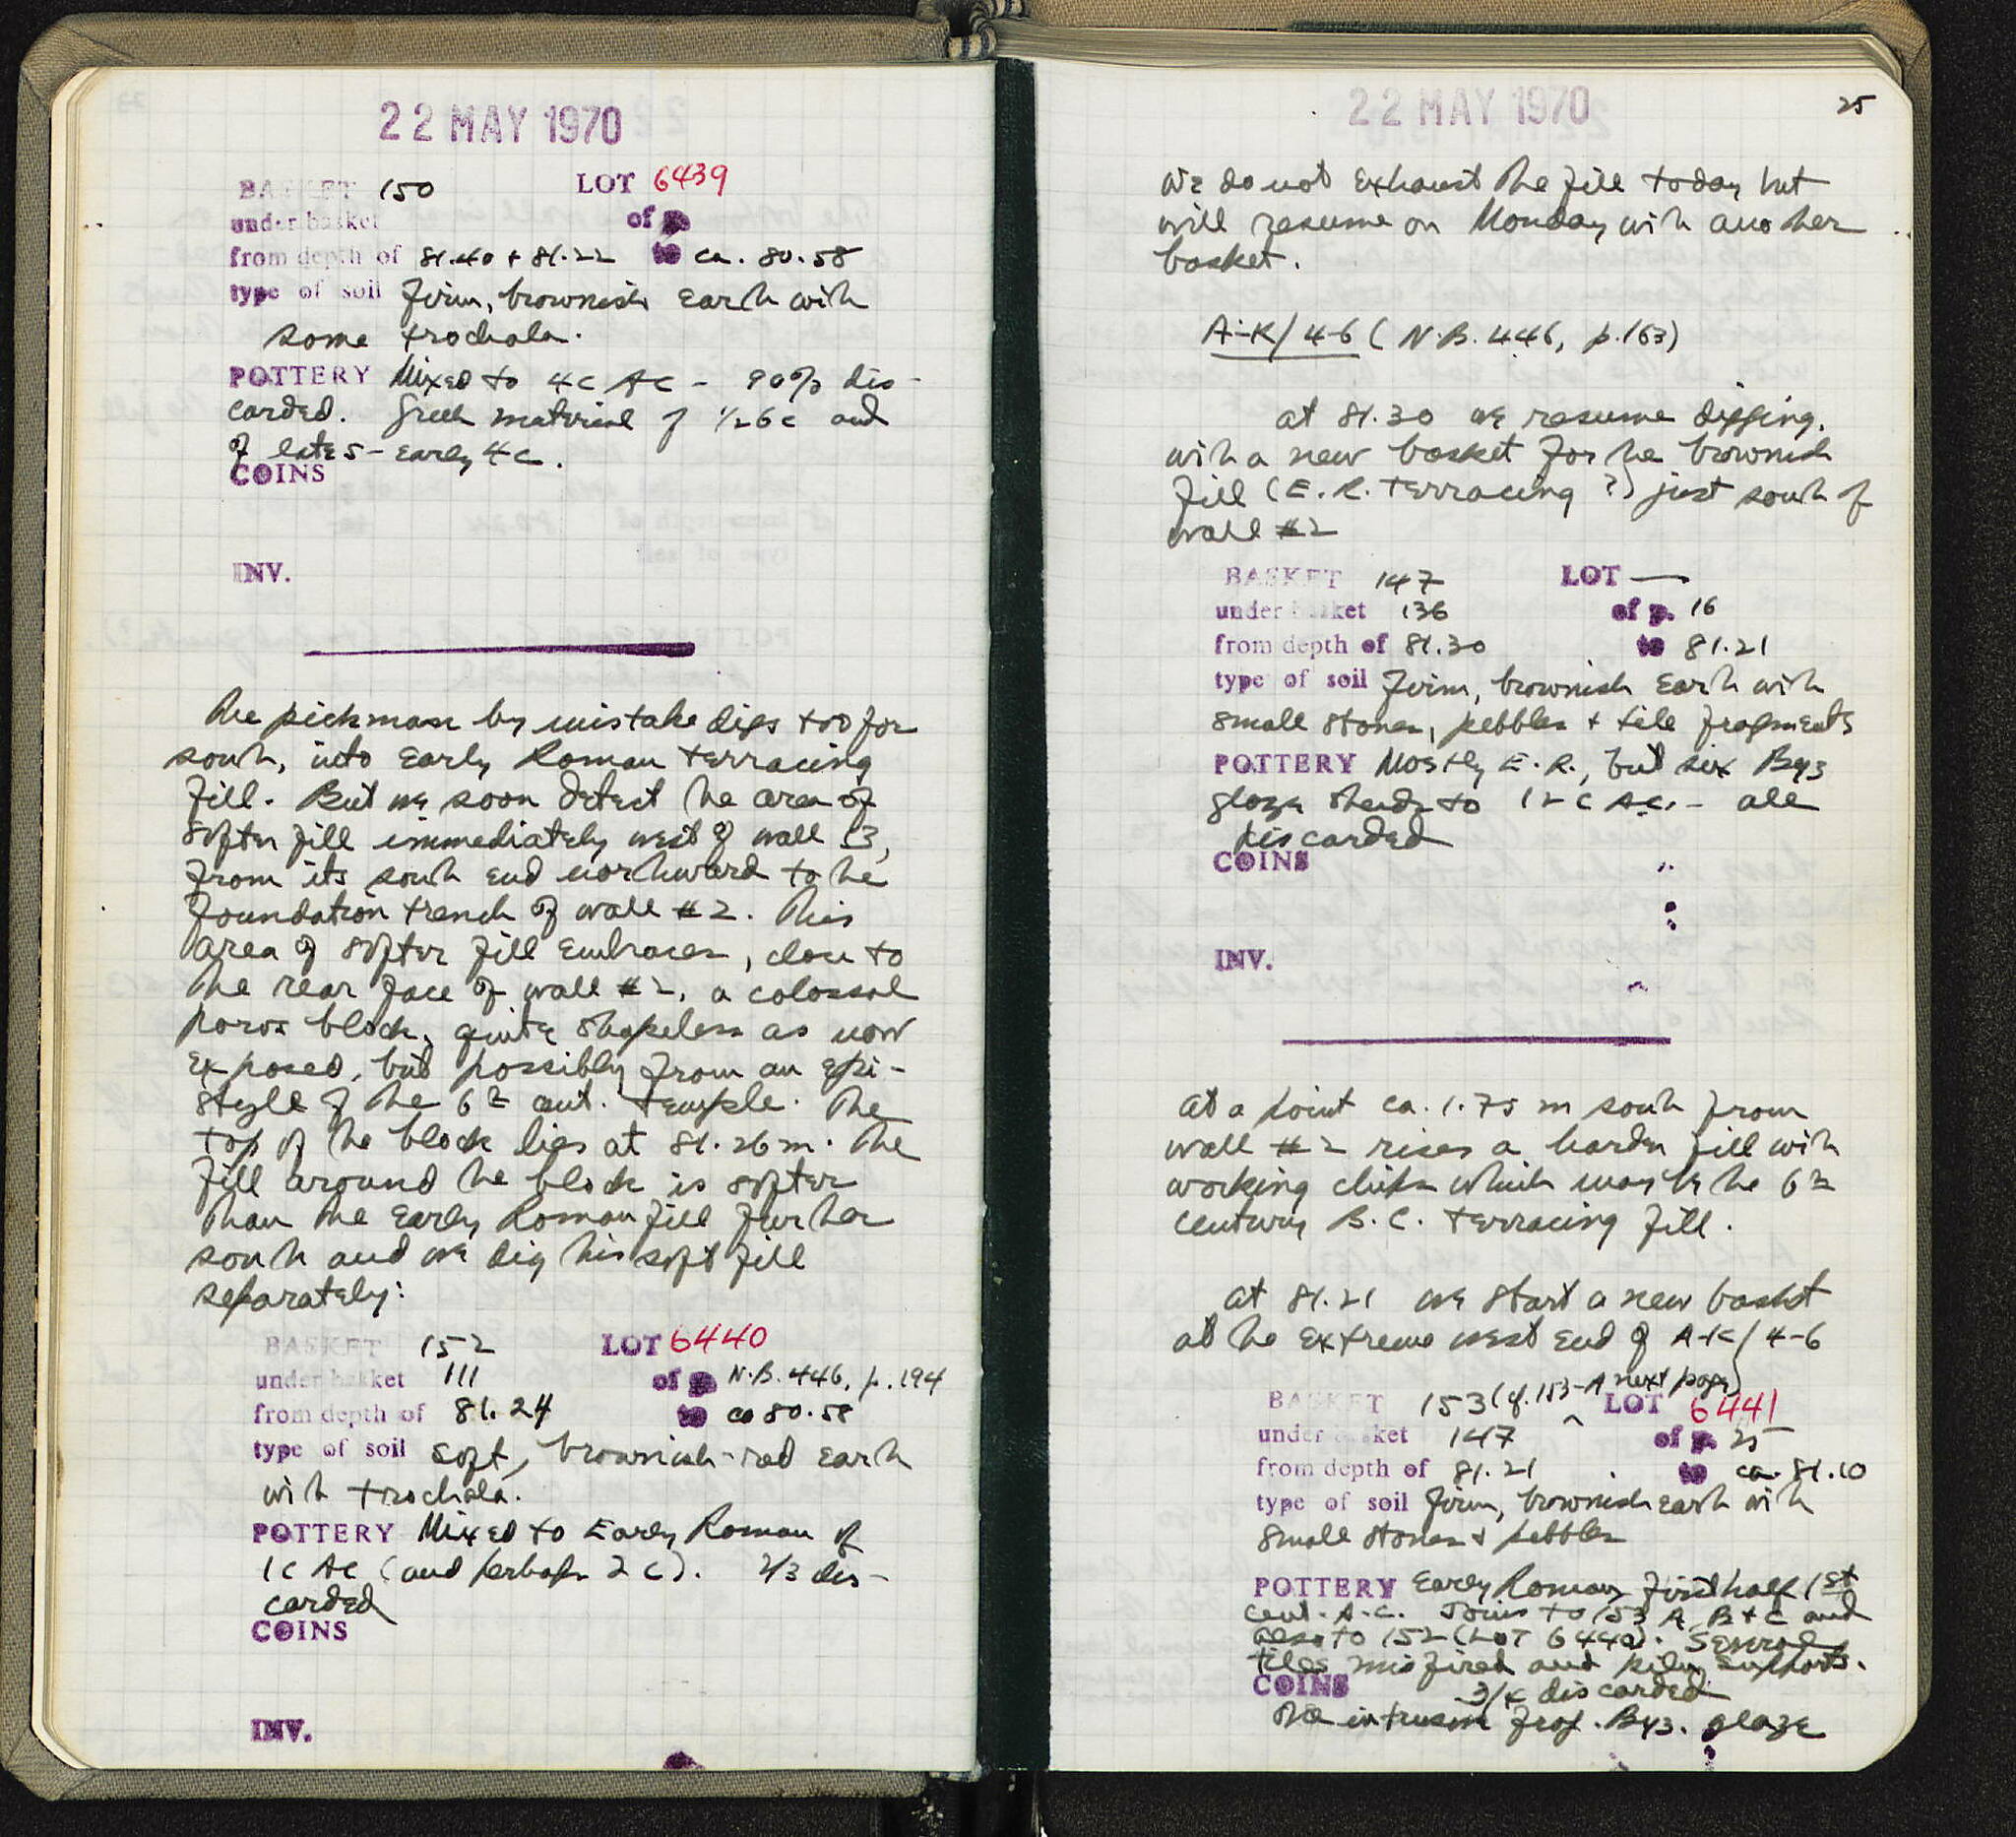 22 MAY 1970
BASKET 150 LOT 6439
under basket of p.
from depth of 81.40 + 81.22 to ca. 80.58
type of soil firm, brownish earth with
some trochala.
POTTERY Mixed to 4C AC - 90% dis-
carded. Greek material of 1/2 6c and
of late 5 - early 4c.
COINS
INV.
The pickman by mistake digs too far
south, into Early Roman terracing
fill. But we soon detect the area of
softer fill immediately west of wall 13,
from its south end northward to the
foundation trench of wall #2. This
area of softer fill embraces, close to
the rear face of wall #2, a colossal
poros block, quite shapeless as now
exposed, but possibly from an epi-
style of the 6th cent. temple. The
top of the block lies at 81.26 m. The
fill around the block is softer
than the Early Roman fill further
south and we dig this soft fill
separately:
BASKET 152 LOT 6440
under basket 111 of p. N.B. 446, p. 194
from depth of 81.24 to ca 80.58
type of soil soft, brownish-red earth
with trochala.
POTTERY Mixed to Early Roman of
1C AC (and perhaps 2 C). 2/3 dis-
carded
COINS
INV.
22 MAY 1970 25
We do not exhaust the fill today but
will resume on Monday with another
basket.
A-K/4-6 (N.B. 446, p. 163)
At 81.30 we resume digging,
with a new basket for the brownish
fill (E.R. terracing?) just south of
wall #2
BASKET 147 LOT —
under basket 136 of p. 16
from depth of 81.30 to 81.21
type of soil firm, brownish earth with
small stones, pebbles + tile fragments
POTTERY Mostly E.R., but six Byz
glaze sherds to 12 C AC. - all
discarded
COINS
INV.
At a point ca. 1.75 m south from
wall #2 rises a harder fill with
working chips which may be the 6th
century B.C. terracing fill.
At 81.21 we start a new basket
at the extreme west end of A-K/4-6
BASKET 153 (cf. 153-A next page) LOT 6441
under basket 147 of p. 25
from depth of 81.21 to ca. 81.10
type of soil firm, brownish earth with
small stones + pebbles
POTTERY Early Roman, first half 1st
cent. A.C. Joins to 153 A, B + C and
also to 152 (LOT 6440). Several
tiles misfired and kiln supports.
COINS 3/4 discarded
One intrusive frag. Byz. glaze